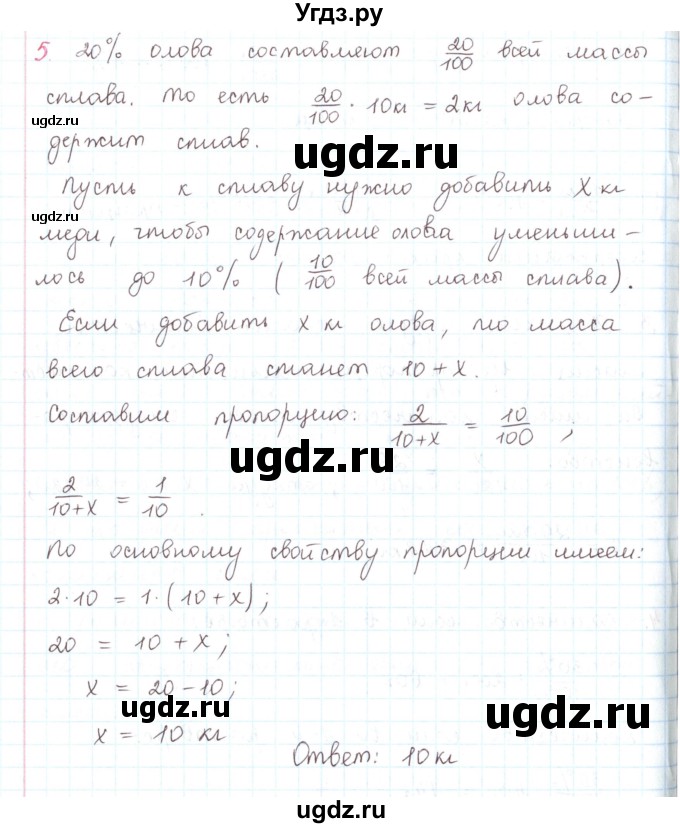 Угдз.ру
5. 20% олова составляют 20/100 всей массы
сплава. То есть 20/100 · 10кг = 2кг олова со-
ugdz.ru
держит сплав.
ugdz.ru
ugdz.ru
Пусть к сплаву нужно добавить x кг
ugdz.ru
меди, чтобы содержание олова уменьши-
лось до 10% ( 10/100 всей массы сплава).
Если добавить x кг олова, то масса
всего сплава станет 10 + x.
Составим пропорцию: 2/(10+x) = 10/100 ,
ugdz.ru
2/(10+x) = 1/10 .
По основному свойству пропорции имеем:
2·10 = 1·(10 + x);
20 = 10 + x;
x = 20 - 10;
ugdz.ru
ugdz.ru
x = 10 кг
Ответ: 10кг
ugdz.ru